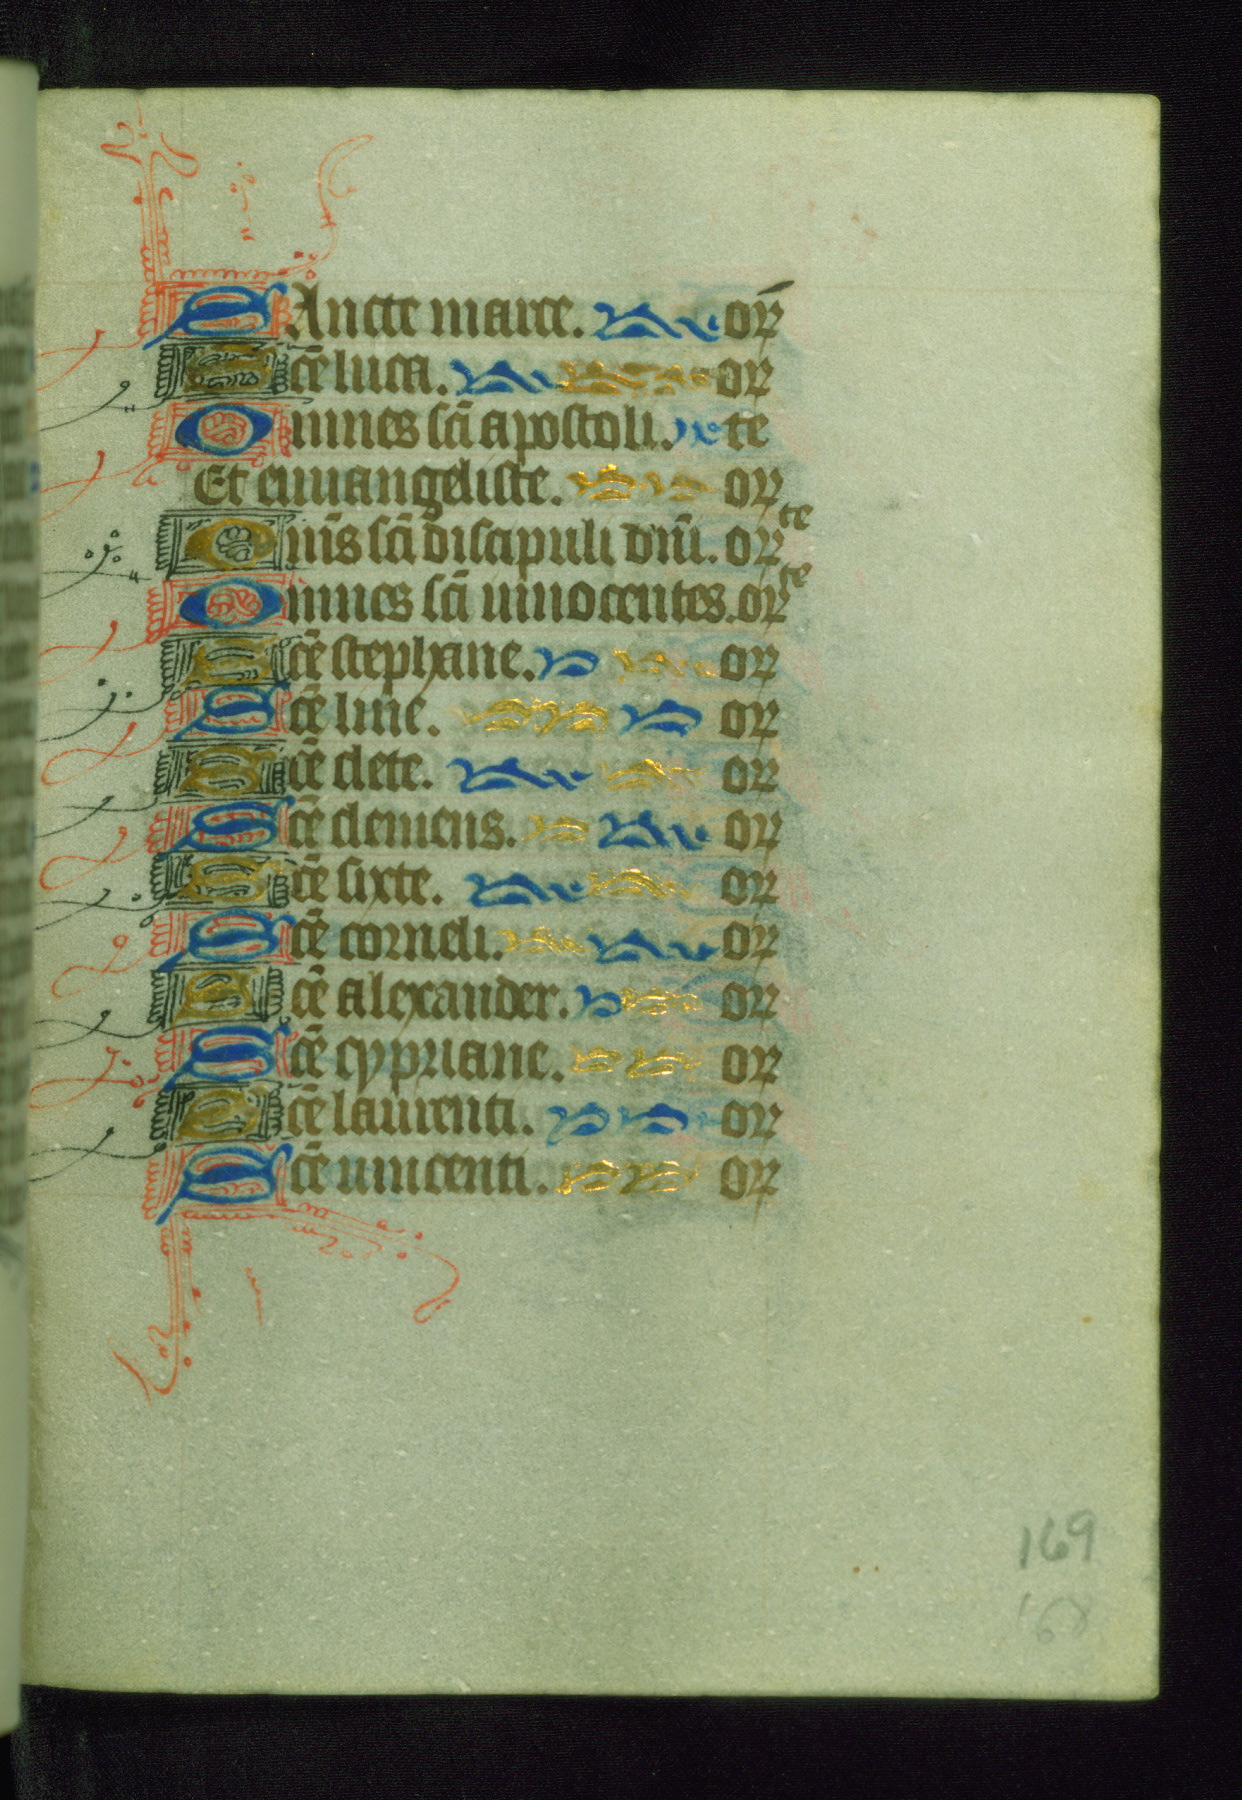 SAncte marce. or̄
Sc̄e luca. or
Omnes sc̄i apostoli. te
Et euuangeliste. or
Om̄s sc̄i discipuli dn̄i. or te
Omnes sc̄i innocentes. or te
Sc̄e stephane. or
Sc̄e line. or
Sc̄e clete. or
Sc̄e clemens. or
Sc̄e sixte. or
Sc̄e corneli. or
Sc̄e alexander. or
Sc̄e cypriane. or
Sc̄e laurenti. or
Sc̄e uincenti. or
169
168